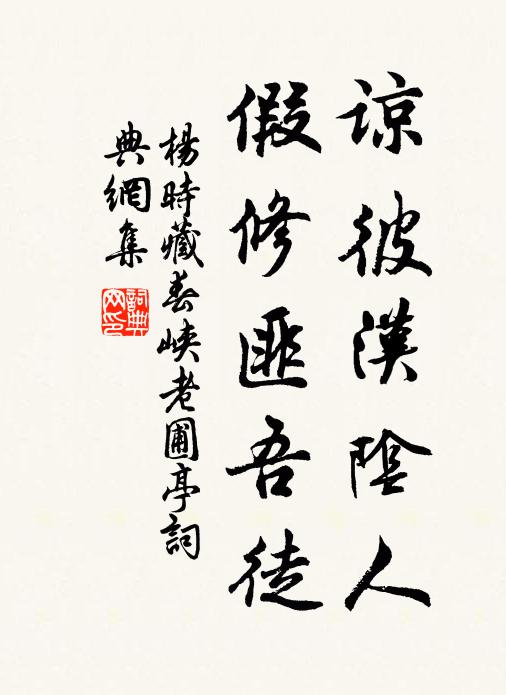 谅彼漢陰人
假修匪吾徒
楊時藏春峽老圃亭詞
典網集
詞典網印